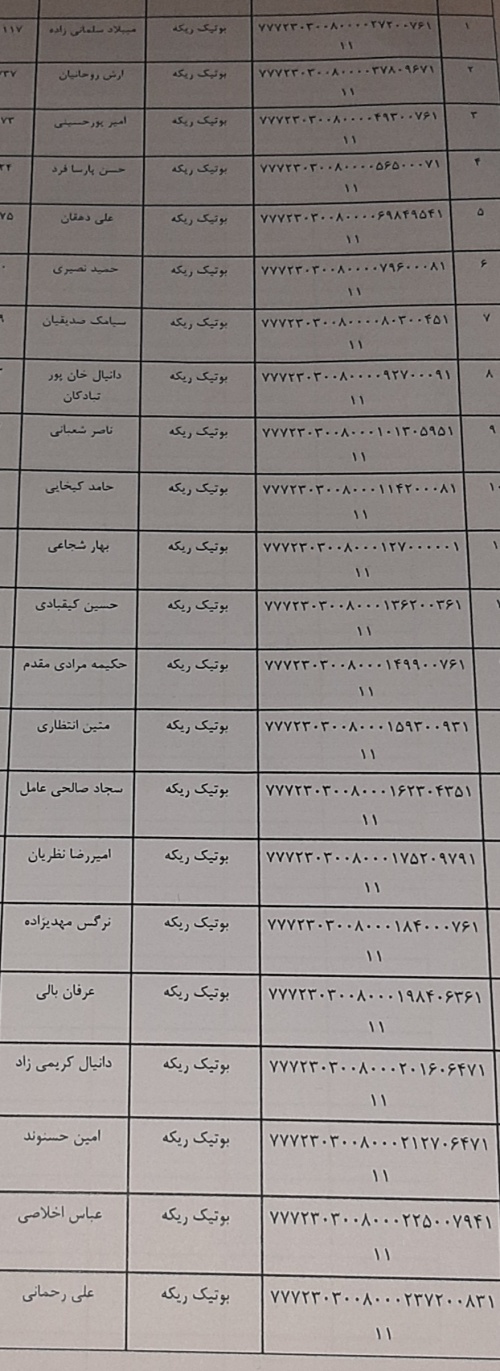 ۱ ۷۷۷۲۳۰۳۰۰۸۰۰۰۰۲۷۲۰۰۷۶۱ بوتیک ریکه میلاد سلمانی زاده ۱۱۷
۱۱
۲ ۷۷۷۲۳۰۳۰۰۸۰۰۰۰۳۷۸۰۹۶۷۱ بوتیک ریکه ارش روحانیان ۳۷
۱۱
۳ ۷۷۷۲۳۰۳۰۰۸۰۰۰۰۴۹۳۰۰۷۶۱ بوتیک ریکه امیر پورحسینی ۷۳
۱۱
۴ ۷۷۷۲۳۰۳۰۰۸۰۰۰۰۵۶۵۰۰۰۷۱ بوتیک ریکه حسن پارسا فرد
۱۱
۵ ۷۷۷۲۳۰۳۰۰۸۰۰۰۰۶۹۸۴۹۵۴۱ بوتیک ریکه علی دهقان ۷۵
۱۱
۶ ۷۷۷۲۳۰۳۰۰۸۰۰۰۰۷۹۶۰۰۰۸۱ بوتیک ریکه حمید نصیری ۰
۱۱
۷ ۷۷۷۲۳۰۳۰۰۸۰۰۰۰۸۰۳۰۰۴۵۱ بوتیک ریکه سیامک صدیقیان ۹
۱۱
۸ ۷۷۷۲۳۰۳۰۰۸۰۰۰۰۹۲۷۰۰۰۹۱ بوتیک ریکه دانیال خان پور
۱۱ تبادکان
۹ ۷۷۷۲۳۰۳۰۰۸۰۰۰۱۰۱۳۰۵۹۵۱ بوتیک ریکه ناصر شعبانی
۱۱
۱۰ ۷۷۷۲۳۰۳۰۰۸۰۰۰۱۱۴۲۰۰۰۸۱ بوتیک ریکه حامد کیخایی
۱۱
۱ ۷۷۷۲۳۰۳۰۰۸۰۰۰۱۲۷۰۰۰۰۰۱ بوتیک ریکه بهار شجاعی
۱۱
۱ ۷۷۷۲۳۰۳۰۰۸۰۰۰۱۳۶۲۰۰۳۶۱ بوتیک ریکه حسین کیقبادی
۱۱
۷۷۷۲۳۰۳۰۰۸۰۰۰۱۴۹۹۰۰۷۶۱ بوتیک ریکه حکیمه مرادی مقدم
۱۱
۷۷۷۲۳۰۳۰۰۸۰۰۰۱۵۹۳۰۰۹۳۱ بوتیک ریکه متین انتظاری
۱۱
۷۷۷۲۳۰۳۰۰۸۰۰۰۱۶۲۳۰۴۳۵۱ بوتیک ریکه سجاد صالحی عامل
۱۱
۷۷۷۲۳۰۳۰۰۸۰۰۰۱۷۵۲۰۹۷۹۱ بوتیک ریکه امیررضا نظریان
۱۱
۷۷۷۲۳۰۳۰۰۸۰۰۰۱۸۴۰۰۰۷۶۱ بوتیک ریکه نرگس مهدیزاده
۱۱
۷۷۷۲۳۰۳۰۰۸۰۰۰۱۹۸۴۰۶۳۶۱ بوتیک ریکه عرفان بالی
۱۱
۷۷۷۲۳۰۳۰۰۸۰۰۰۲۰۱۶۰۶۴۷۱ بوتیک ریکه دانیال کریمی زاد
۱۱
۷۷۷۲۳۰۳۰۰۸۰۰۰۲۱۲۷۰۶۴۷۱ بوتیک ریکه امین حسنوند
۱۱
۷۷۷۲۳۰۳۰۰۸۰۰۰۲۲۵۰۰۷۹۴۱ بوتیک ریکه عباس اخلاصی
۱۱
۷۷۷۲۳۰۳۰۰۸۰۰۰۲۳۷۲۰۰۸۳۱ بوتیک ریکه علی رحمانی
۱۱